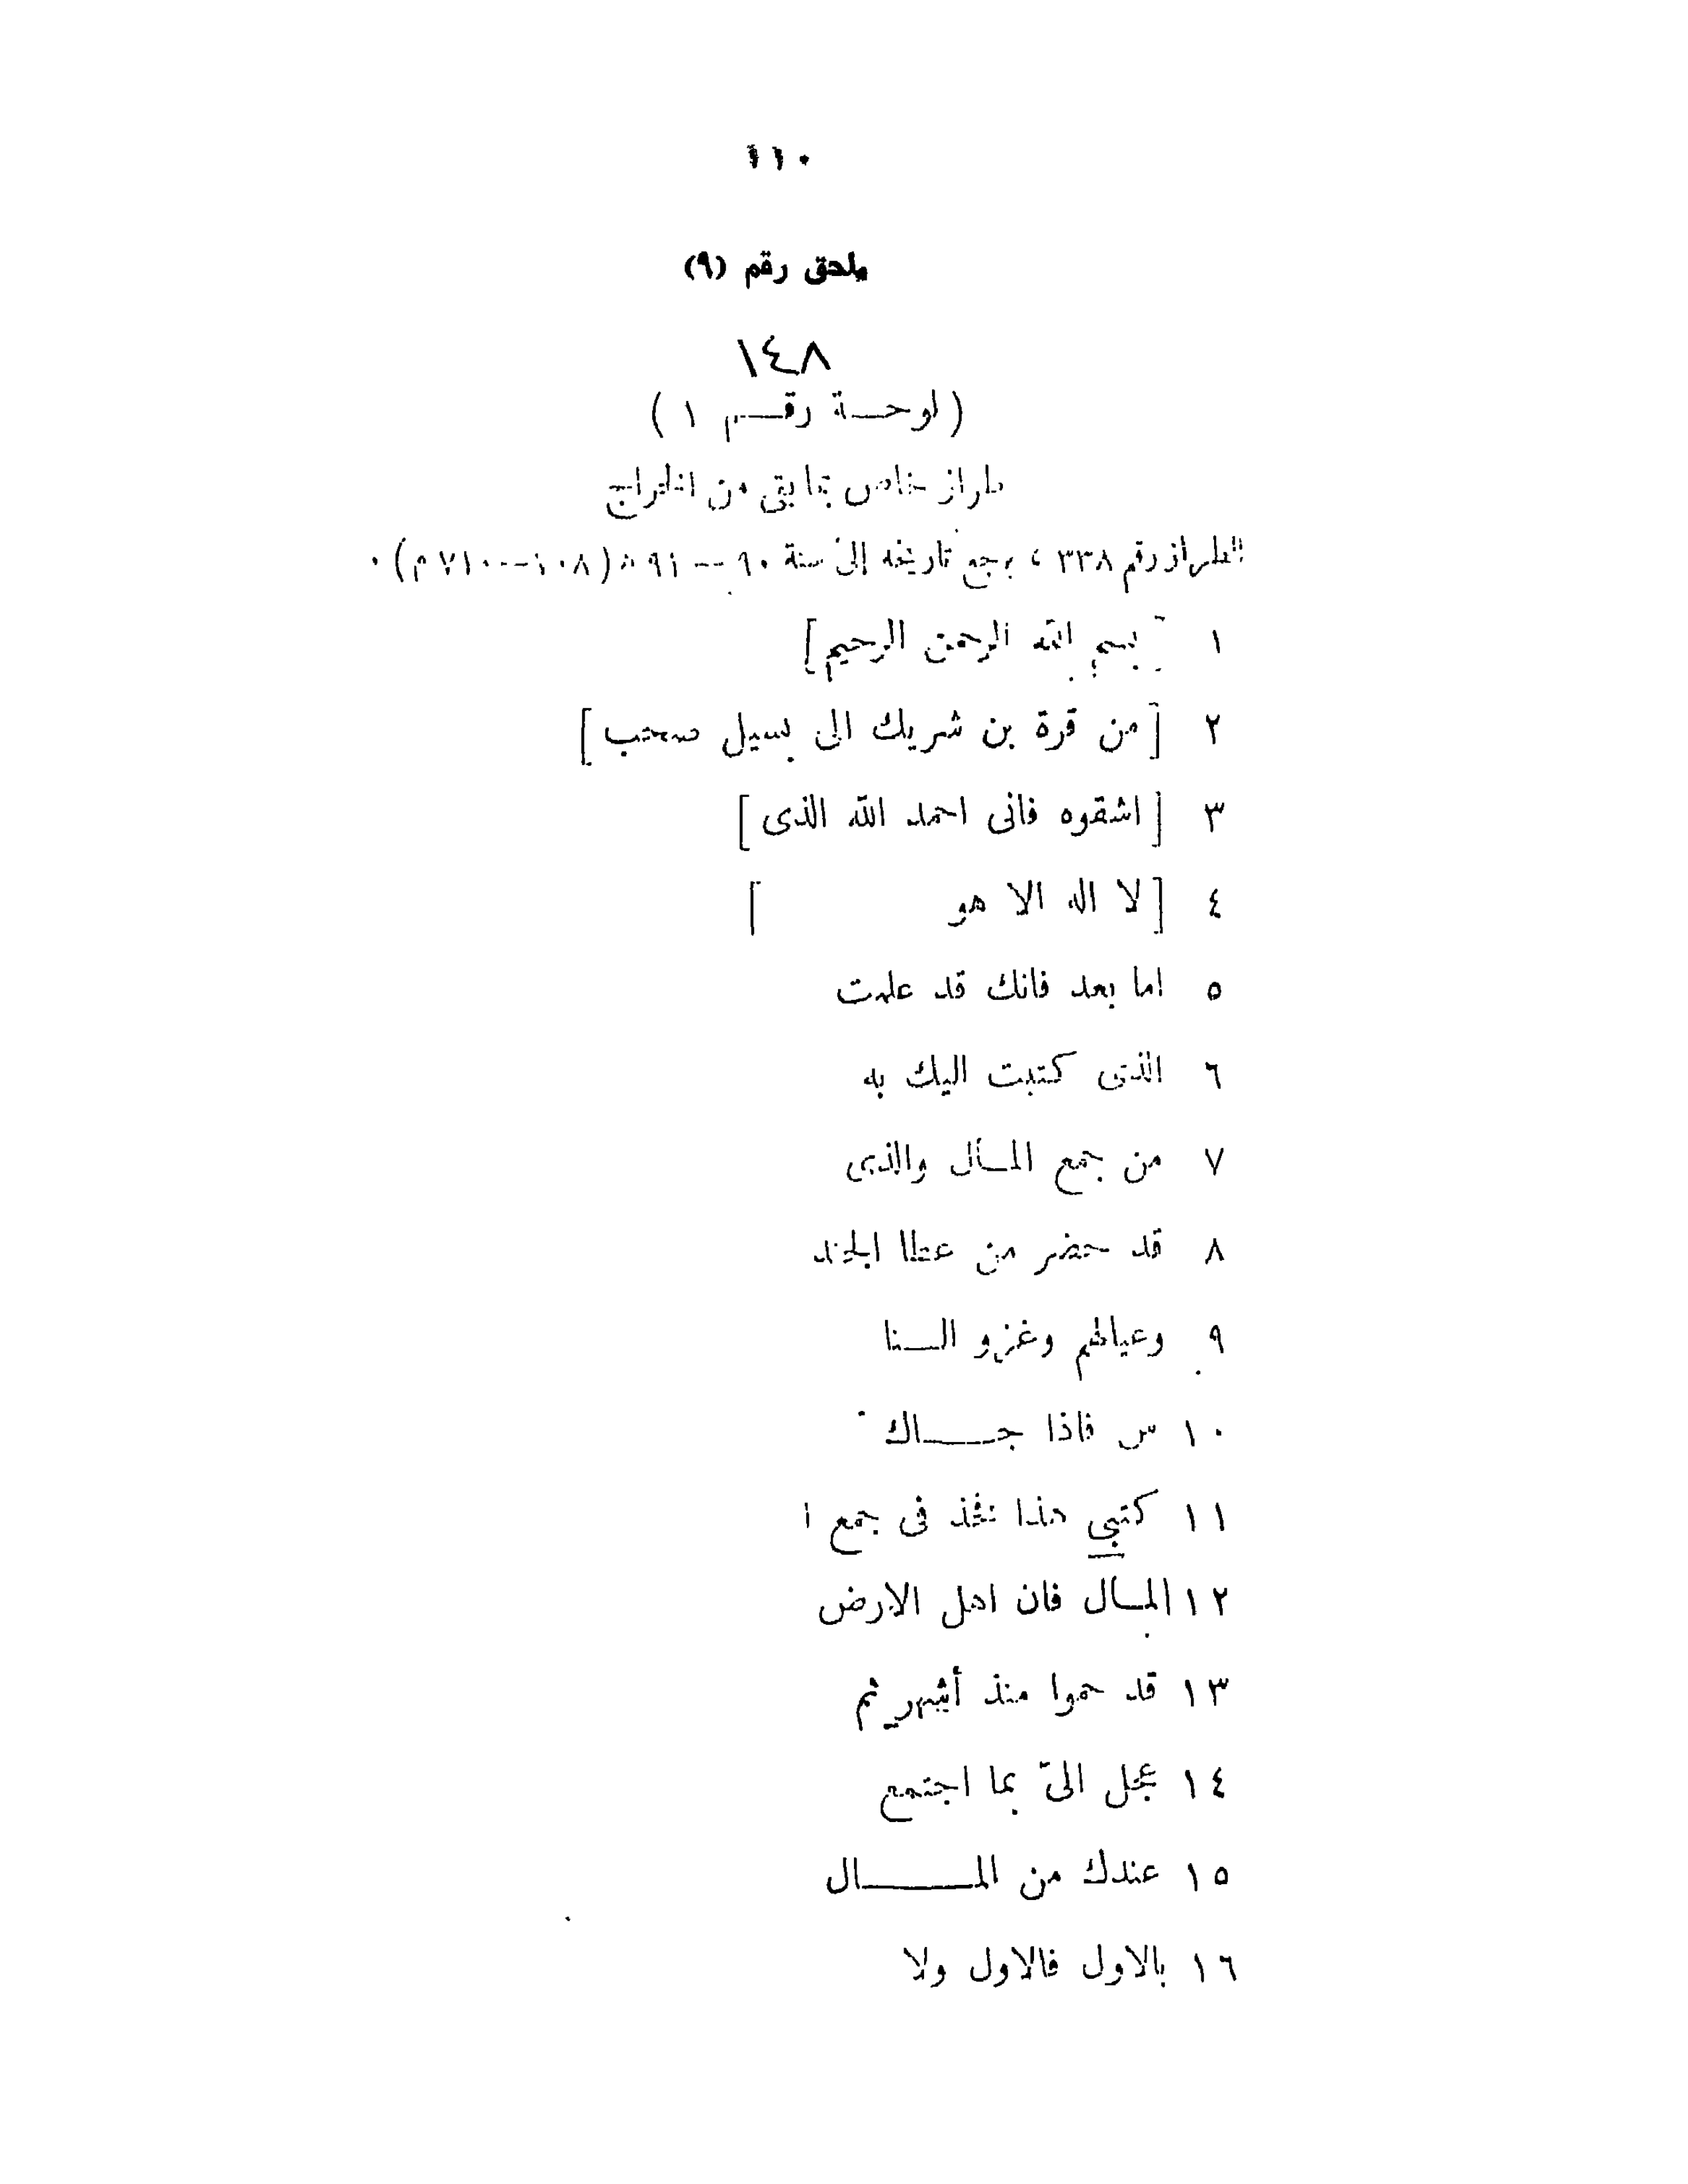 ١١٠
ملحق رقم (٩)
١٤٨
( لوحـــة رقـــم ١ )
طراز خاص بما بقى من الخراج
الطراز رقم ٣٣٨ ، يرجع تاريخه إلى سنة ٩٠ — ٩١ ھ (٧٠٨—٧١٠ م) .
١ [بسم الله الرحمن الرحيم]
٢ [من قرة بن شريك الى بسيل صحب]
٣ [اشقوه فانى احمد الله الذى]
٤ [لا اله الا هو ]
٥ اما بعد فانك قد علمت
٦ الذى كتبت اليك به
٧ من جمع المــال والذى
٨ قد حضر من عطا الجند
٩ وعيالهم وغزو الــنا
١٠ س فاذا جـــاك
١١ كتبي هذا فخذ فى جمع ا
١٢ المــال فان اهل الارض
١٣ قد حموا منذ أشهر ثم
١٤ عجل الىّ بما اجتمع
١٥ عندك من المـــــال
١٦ بالاول فالاول ولا